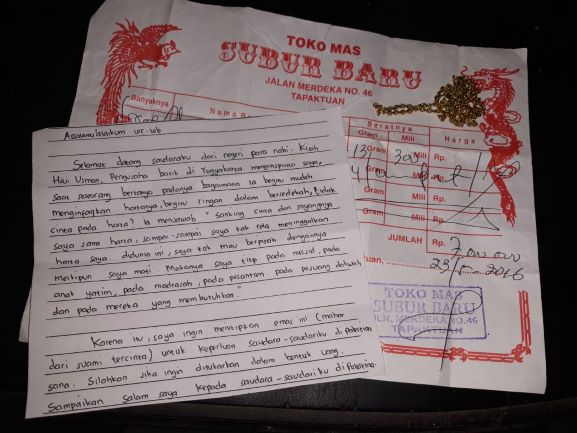 TOKO MAS
SUBUR BARU
JALAN MERDEKA NO. 46
TAPAKTUAN
Banyaknya
Nama B
Beratnya
Harga
Gram
Mili
Rp.
Gram
Mili
Rp.
Gram
Mili
Rp.
Gram
Mili
Rp.
JUMLAH
Rp.
7.000.000
tuan,
2016
TOKO MAS
SUBUR BARU
JLN. MERDEKA NO. 46
TAPAKTUAN
Assalamu'alaikum wr wb
Selamat datang saudaraku dari negeri para nabi. Kisah
Haji Usman, Pengusaha batik di Yogyakarta menginspirasi saya,
saat seseorang bertanya padanya bagaimana Ia begitu mudah
menginfaqkan hartanya, begitu ringan dalam bersedekah, tidak
cinta pada harta? Ia menjawab " Sanking cinta dan sayangnya
saya sama harta, sampai-sampai saya tak rela meninggalkan
harta saya didunia ini, saya tak mau berpisah dengannya
meskipun saya mati. Makanya saya titip pada mesjid, pada
anak yatim, pada madrasah, pada pesantren pada pejuang dakwah
dan pada mereka yang membutuhkan "
Karena itu, saya ingin menitipkan emas ini (mahar
dari suami tercinta) untuk keperluan saudara-saudariku di Palestina
sana. Silahkan jika ingin ditukarkan dalam bentuk uang.
Sampaikan salam saya kepada saudara-saudariku di Palestina.